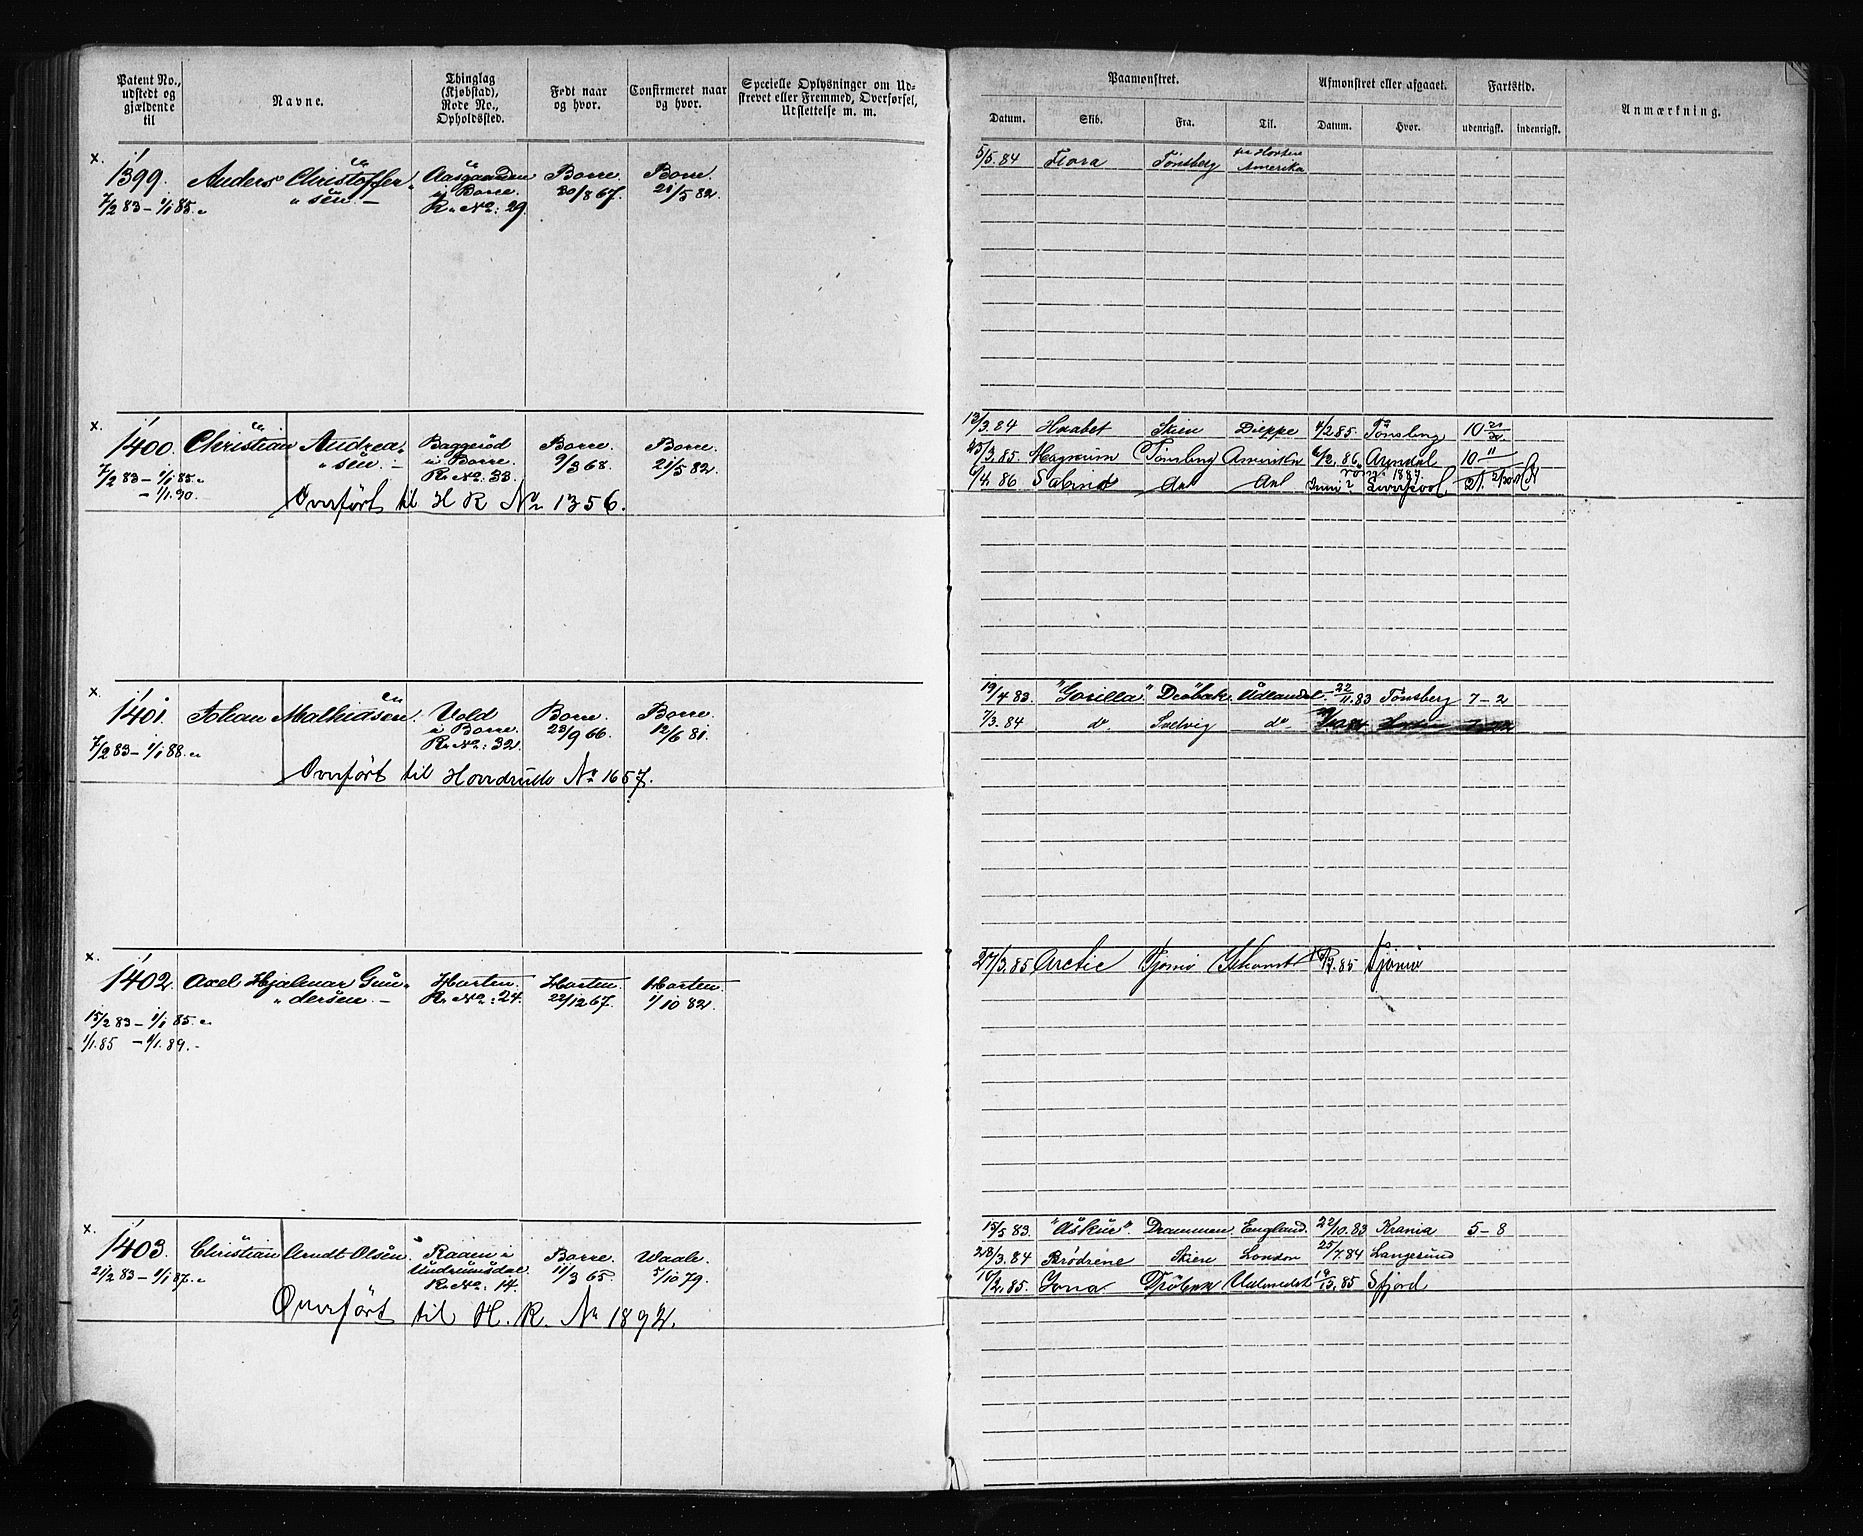 Patent No., udstedt og gjældende til
Navne.
Thinglag (Kjøbstad), Rode No., Opholdssted.
Født naar og hvor.
Confirmeret naar og hvor.
Specielle Oplysninger om Udstrevet eller Fremmed, Overførsel, Udslettelse m. m.
Paamønstret.
Datum. Skib. Fra. Til.
Afmønstret eller afgaaet.
Datum. Hvor.
Fartstid.
udenrigsk. indenrigsk.
Anmærkning.
x.
1399. Anders Christoffer- Aasgaarden Borre. Borre.
7/2 83 – 1/1 85. „ sen. – i Borre. 30/8 67. 21/5 82.
R. No: 29.
5/5. 84 Flora Tönsberg Amerika
x.
1400. Christian Andrea- Baggeröd Borre. Borre.
7/2 83 – 1/1 85. „ sen. – i Borre. 9/3 68. 21/5 82.
– 1/1. 90. R. No: 33.
Overført til H R No 1356.
13/3. 84 Haabet Skien Dieppe 4/2 85. Tönsberg 10
25/3. 85. Magnum Tönsberg Amerika 6/2. 86. Arendal 10
6/4. 86. Liverpool.
x.
1401. Johan Mathiasen. Vold Borre. Borre.
7/2 83 – 1/1 88. i Borre. 23/9 66. 12/6 81.
R. No: 32.
Overført til Hovedrulle No 1657.
19/4 83. "Gorilla" Dröbak. Udlandet. 22/11. 83 Tönsberg 7 – 2
7/3. 84 do. Svelvig do
x.
1402. Axel Hjalmar Gun- Horten. Horten. Horten.
„ dersen. – R. No: 24. 22/12 67. 1/10 82.
15/2 83 – 1/1 85.
1/1. 85 – 1/1. 89. –
27/3. 85 Arctic Tjömö Ishavet 85 Tjömö
x.
1403. Christian Arndt Olsen Raaen i Borre. Waale.
21/2 83 – 1/1 87. Undrumsdal 11/3 65. 5/10 79.
R. No: 14.
Overført til H. R. No 1892.
15/5 83. "Askur". Drammen. England. 22/10. 83 Krania 5 – 8
28/3. 84 Brödrene Skien London 25/7. 84 Langesund
16/2. 85. Dröbak Udlandet 85 Sfjord